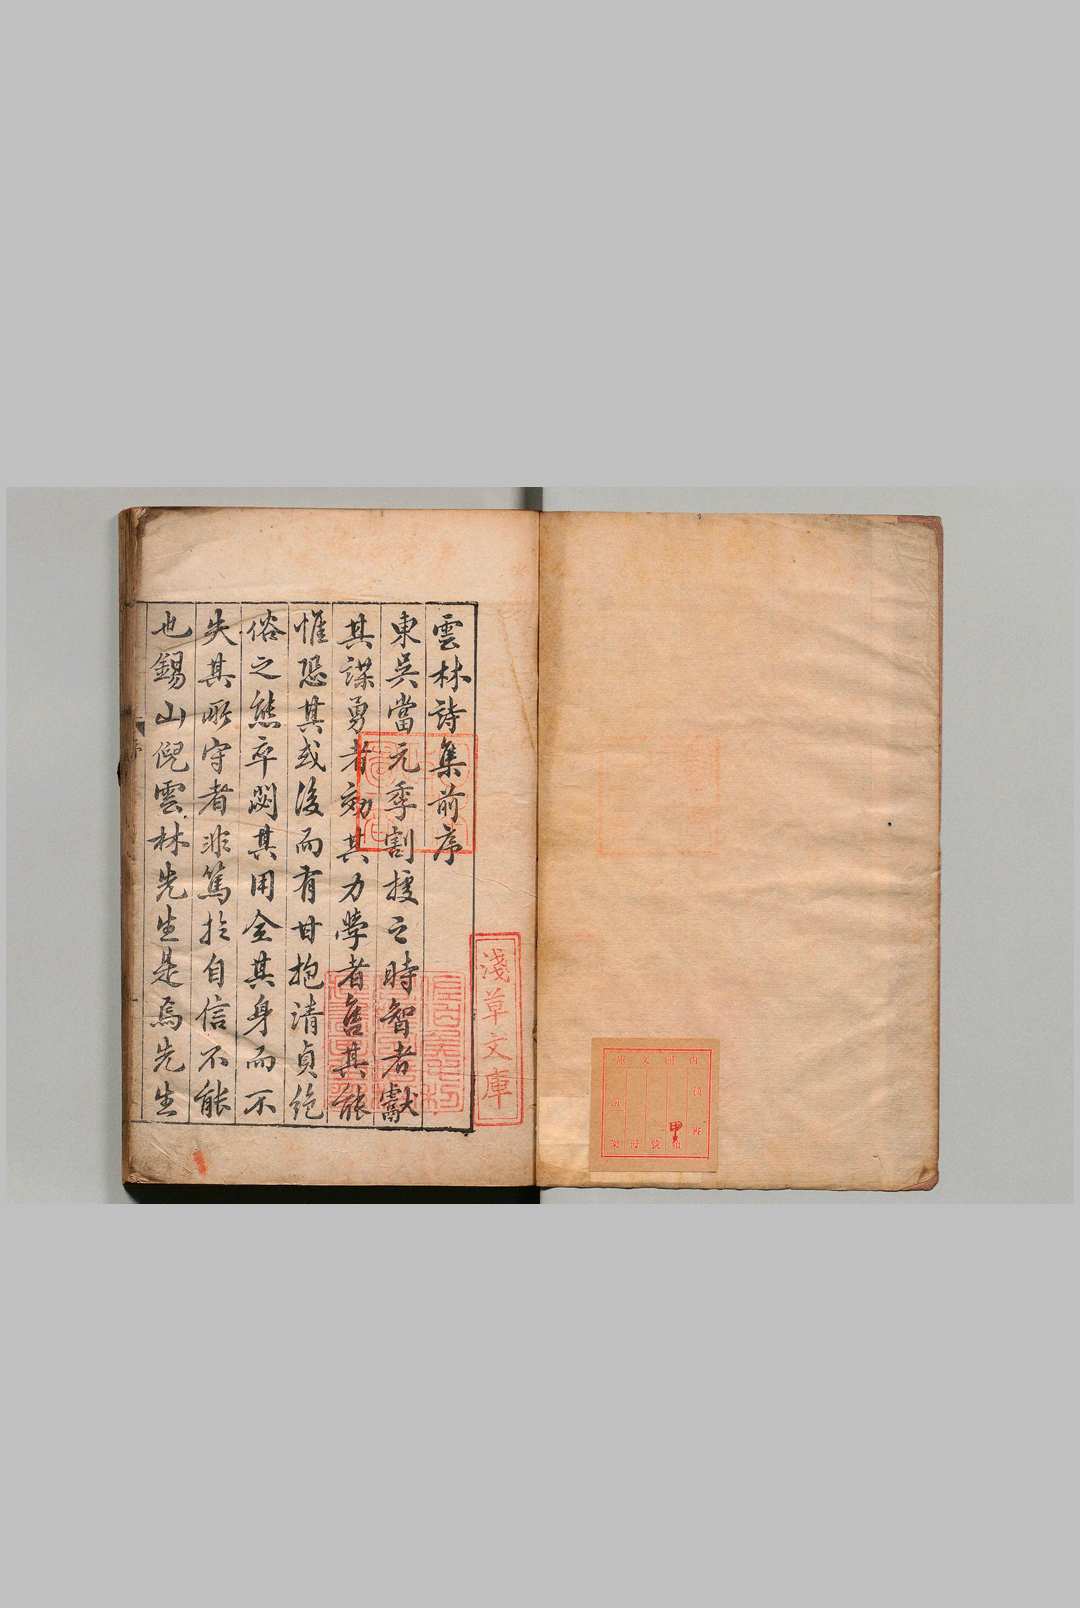 雲林詩集前序
東吳當元季割據之時智者獻
其謀勇者效其力學者售其能
惟恐其或後而有甘抱清貞絶
俗之態卒闕其用全其身而不
失其所守者非篤於自信不能
也錫山倪雲林先生是焉先生
序
淺草文庫
甲